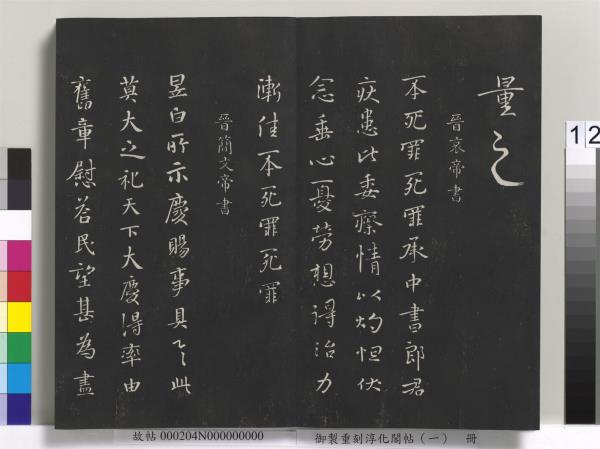 量之
晉哀帝書
丕死罪死罪承中書郎君
疾患比委瘵情以灼怛伏
念垂心憂勞想得治力
漸佳丕死罪死罪
晉簡文帝書
昱白所示慶賜事具之此
莫大之祀天下大慶得率由
舊章慰荅民望甚為盡
12
故帖 000204N000000000
御製重刻淳化閣帖（一） 冊